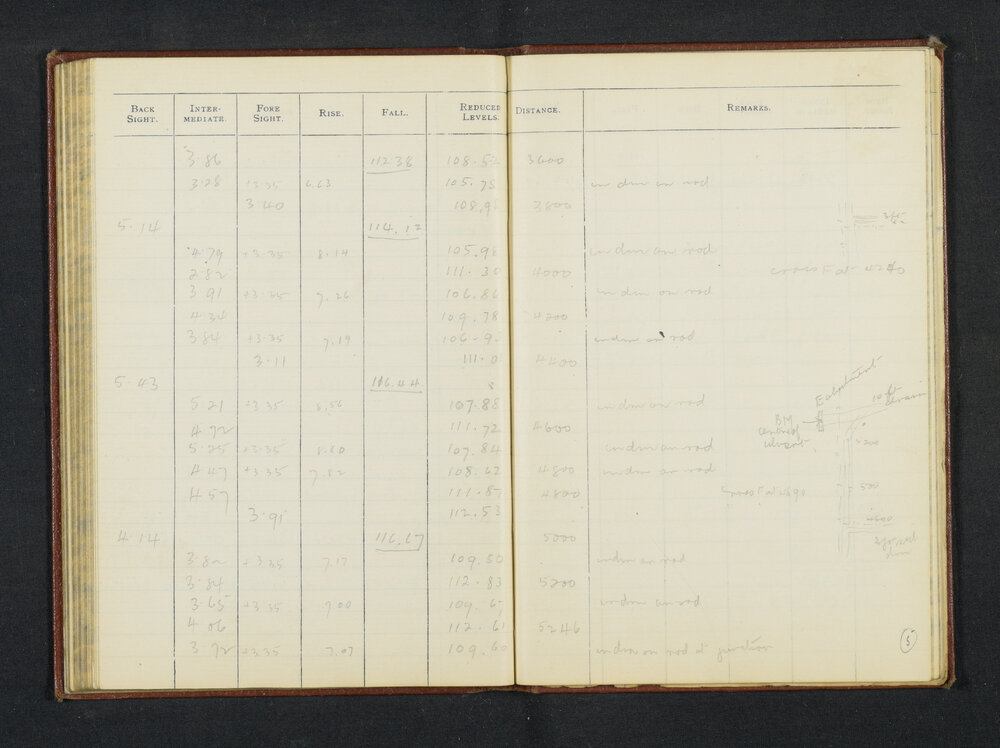 BACK SIGHT. INTER-MEDIATE. FORE SIGHT. RISE. FALL. REDUCED LEVELS. DISTANCE. REMARKS.
3.86 112.38 108.52 3600
3.28 +3.35 6.63 105.75 in drn on rod
3.40 108.98 3800
5.14 114.12
4.79 +3.35 8.14 105.98 in drn on rod
2.82 111.30 4000 cross F at 4240
3.91 +3.35 7.26 106.86 in drn on rod
4.34 109.78 4200
3.84 +3.35 7.19 106.9 in drn on rod
3.11 111.0 4400
5.43 116.44
5.21 +3.35 8.56 107.88 in drn on rod
4.72 111.72 4600
5.25 +3.35 8.60 107.84 in drn on rod
4.47 +3.35 7.82 108.62 4800 in drn on rod
4.57 111.87 4800
3.91 112.53
4.14 116.67 5000
3.82 +3.35 7.17 109.50 in drn on rod
3.84 112.83 5200
3.65 +3.35 7.00 109.67 in drn on rod
4.06 112.61 5246
3.72 +3.35 7.07 109.60 in drn on rod at junction
10 ft drain
BM
500
5